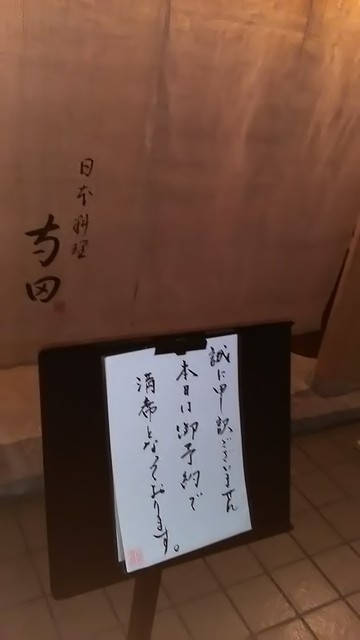 日本料理
誠に申訳ございません
本日は御予約で
満席となっております。